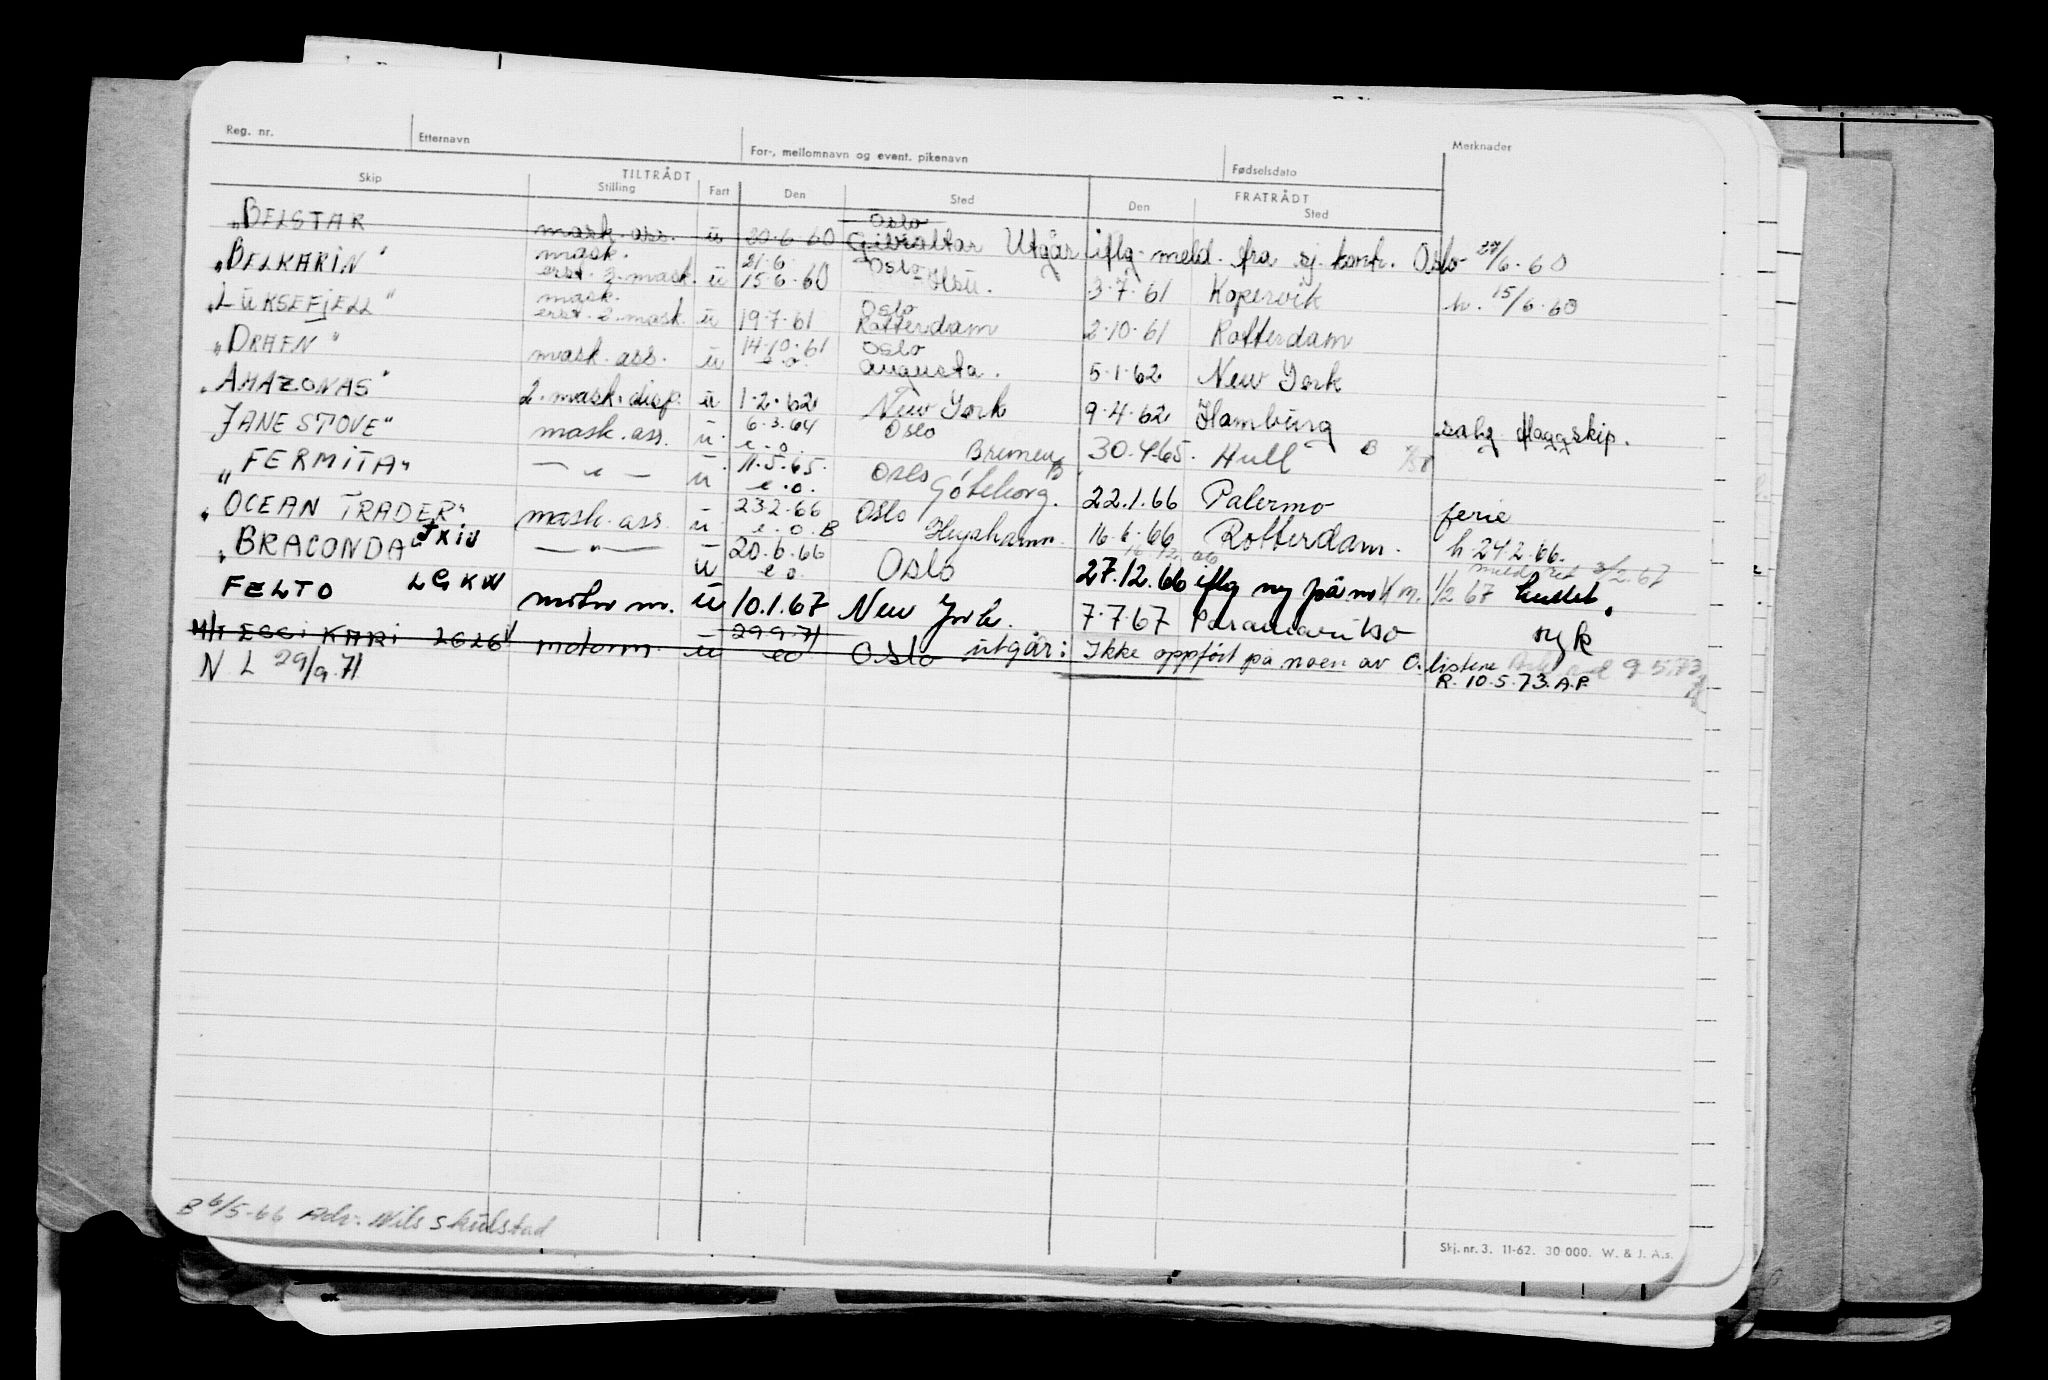 Reg. nr. Etternavn For-, mellomnavn og event. pikenavn Fødselsdato Merknader
TILTRÅDT FRATRÅDT
Skip Stilling Fart Den Sted Den Sted
"BELSTAR mask. ass. u 20.6.60 Oslo Gibraltar Utgår iflg. meld. fra sj. kontr. Oslo 27/6.60
"BELKARIN" mask. erst. 3. mask. u 21.6 15.6.60 Oslo 3.7.61 Kopervik h. 15/6.60
"LUKSEFJELL" mask. erst. 2. mask. u 19.7.61 Oslo Rotterdam 2.10.61 Rotterdam
"DRAFN" mask. ass. u 14.10.61 e.o. Oslo Augusta. 5.1.62 New York
"AMAZONAS" 2. mask. disp. u 1.2.62 New York 9.4.62 Hamburg salg flaggskip.
JANE STOVE" mask. ass. u. 6.3.64 e.o. Oslo Bremen 30.4.65. Hull B
"FERMITA" — " — u 11.5.65. e.o. Oslo Göteborg. 22.1.66 Palermo ferie
"OCEAN TRADER" mask. ass. u. 23.2.66 e.o. B Oslo Heysham. 16.6.66 Rotterdam. h. 24.2.66.
"BRACONDA" JXIU — " — u 20.6.66 e.o. Oslo 16.12.66 27.12.66 iflg ny påm 1/2 67 meld ret 3/2.67
FELTO LGKW motor m. u 10.1.67 New York. 7.7.67 Paramaribo syk
M/T EGGI KARI 2626 motorm. u 29.9.71 eo Oslo utgår: Ikke oppført på noen av O. listene 9.5.73
N L 29/9.71 R. 10.5.73. A.P.
B 6/5-66 Adv. Nils Skulstad
Skj. nr. 3. 11-62. 30 000. W. & J. A.s.